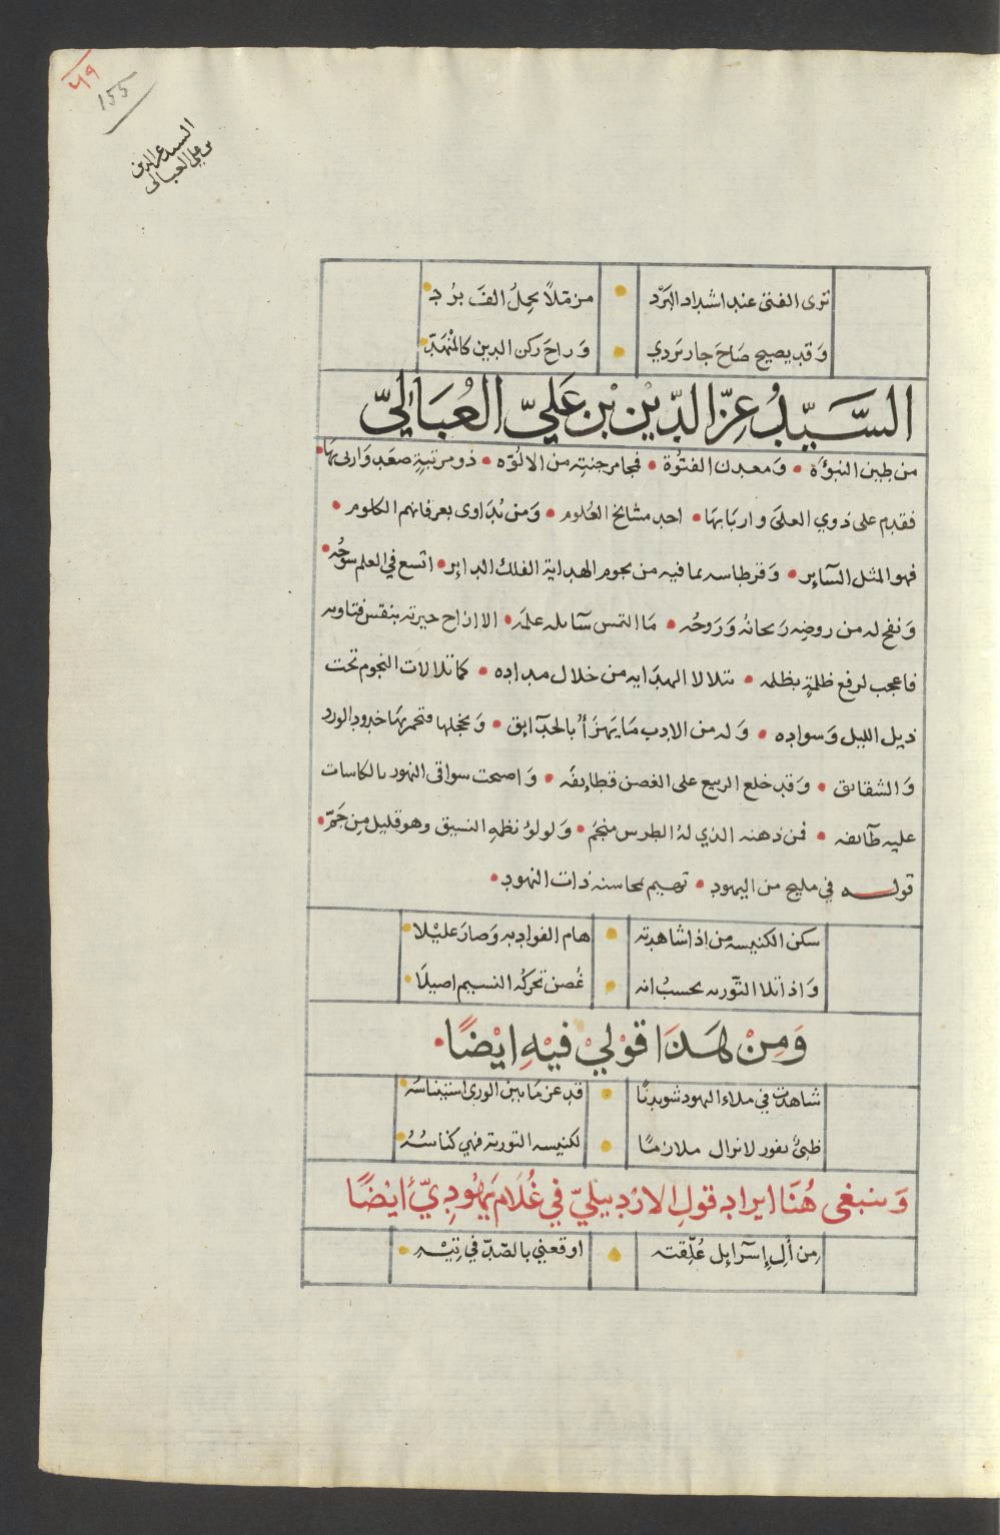 ٤٩
155
السيد عز الدين
بن علي العبالي
ترى الفتى عند اشتداد البَرْد • من قلاً بحِلُ الفَ بُرْد •
وَقد يصيح صَاحَ جار بَردي • وَراحَ ركن الدين كالمنْهَدِّ •
السَّيّدُ عِزّ الدّيْن بْن عَليّ العُبَاليّ
من طين النبوَّة • وَمعدن الفتوُة • مجامر جنته من الالُوّه • ذو مرتبةٍ صعَد وَارلى بهَا •
فقدم على ذوي العلىَ واربَابهَا • احد مشايخ العُلوم • وَمن تُدَاوى بعرفانهم الكلوم •
فهو المثل السآيِر • وَقرطاسه بما فيه من نجوم الهداية الفلك الدايِر • اتسع في العلم سَوْحُه •
وَنفح له من روضِه رَيحانُه وَرَوحُه • مَا التمس سآيله علمَه • الا ازاح حيرته بنقس فتاويه
فاعجب لرفع ظلمَةٍ بظلمه • تتلالا الهدَايه من خلال مداده • كما تلالات النجوم تحت
ذيل الليل وَسواده • وَله من الادب مَا يَهزَأُ بالحدَآيق • وَيخجلها فتحمر بهَا خدود الورد
وَالشقائق • وَقد خلع الربيع على الغصن قطايِفَه • وَاصبحت سواقى النهود بالكاسات
عليه طآئفه • فمن ذهنه الذي لهُ الطِرس منجَم • وَلولؤ نظمِهِ النسيق وهو قليل مِن جَمّ •
قولـــه في مليح من اليهود • تهيم بمحاسنه ذات النهود •
سكن الكنيسه من اذا شاهدته • هام الفواد به وَصارَ عليْلا •
وَاذا تلا التّورىه يحسبُ انه • غُصن تحركُه النسيم اصيلاَ •
وَمِنْ لهَذَا قوْليْ فيْهِ ايْضًا •
شاهدْت في ملاء اليهود شويدنًا • قد عز مَا بين الورى استيناسُه •
ظبىٌ نفور لا يزال ملازمًا • لكنيسه التوريه فهي كناسُهُ •
وَينبغى هُنَا ايراد قول الاردبيليّ في غُلَام يَهُودِيّ اَيْضًا
مِن أَلِ إسرَآيِل عُلِّقته • اوقعني بالصّدّ في تِيْـهِ •